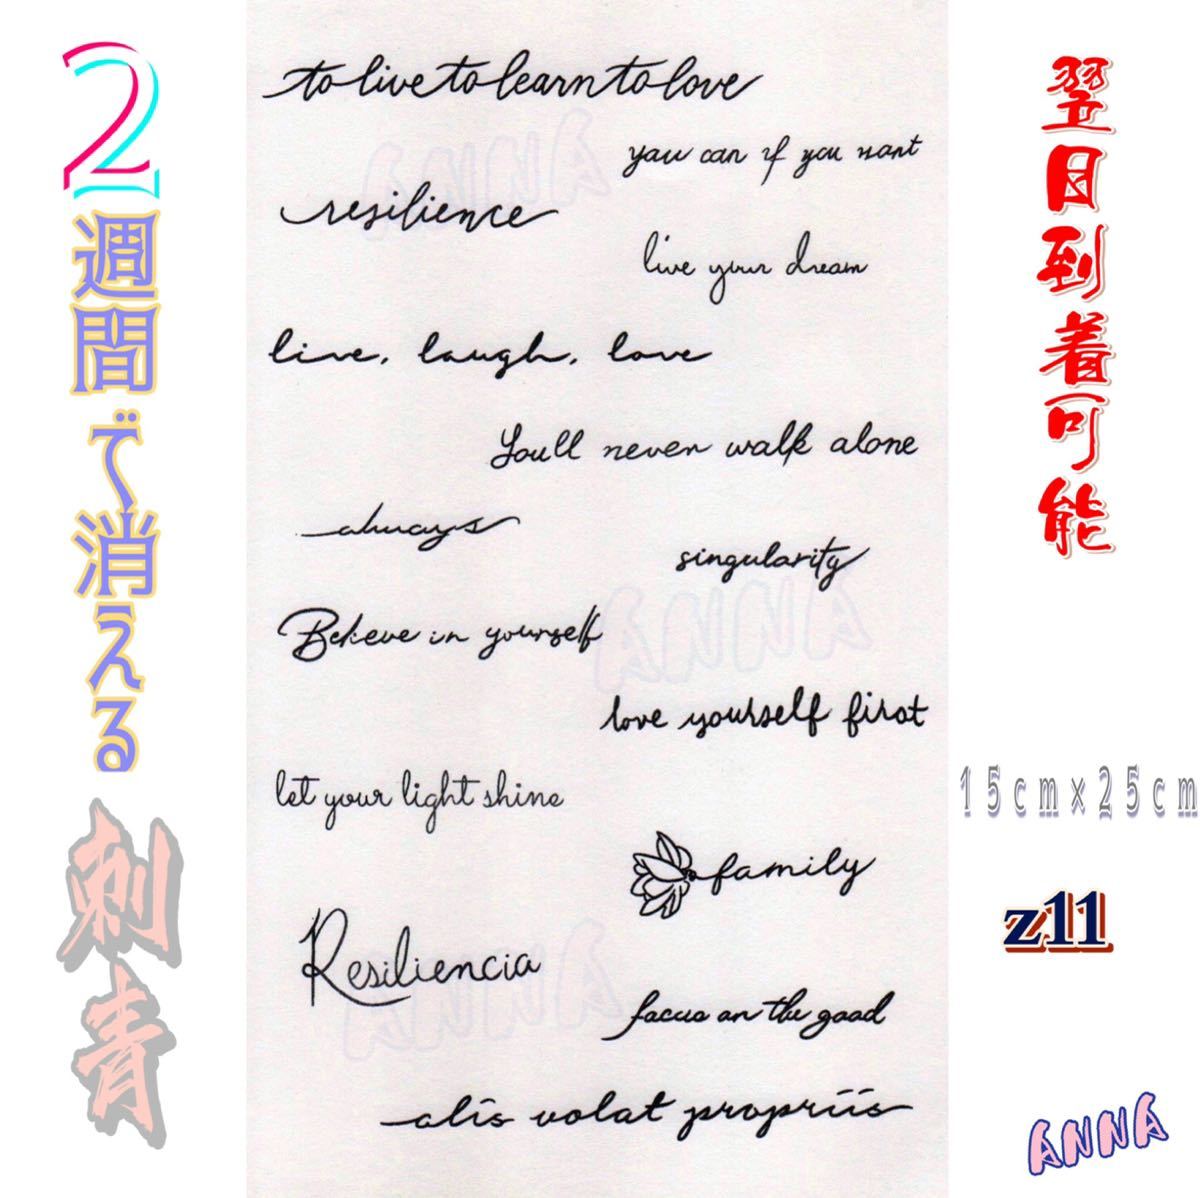 2週間で消える
刺青
to live to learn to love
you can if you want
resilience
live your dream
live, laugh, love
You'll never walk alone
always
singularity
Believe in yourself
love yourself first
let your light shine
family
Resiliencia
focus on the good
alis volat propriis
翌日到着可能
15cm×25cm
z11
ANNA
ANNA
ANNA
ANNA